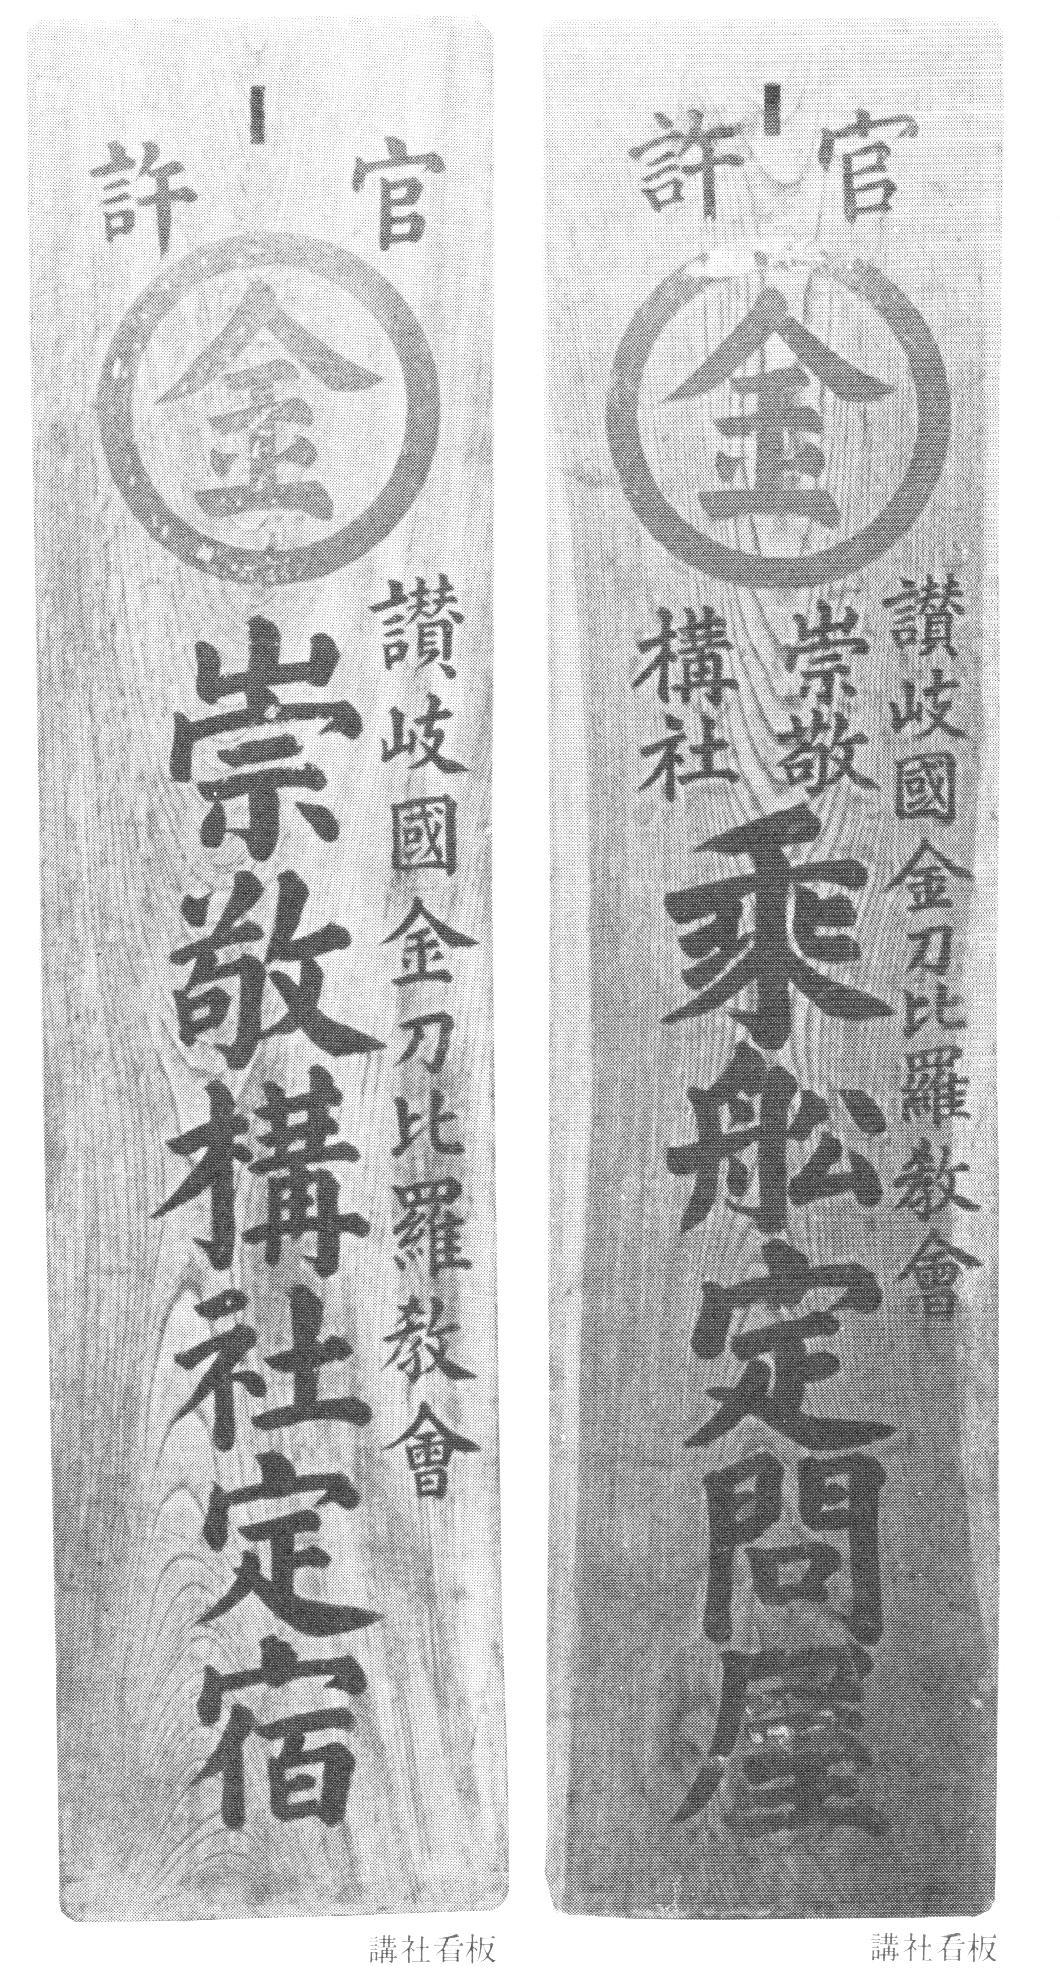 官許
金
讃岐國金刀比羅教會
崇敬
構社
乘船定問屋
講社看板
官許
金
讃岐國金刀比羅教會
崇敬構社定宿
講社看板